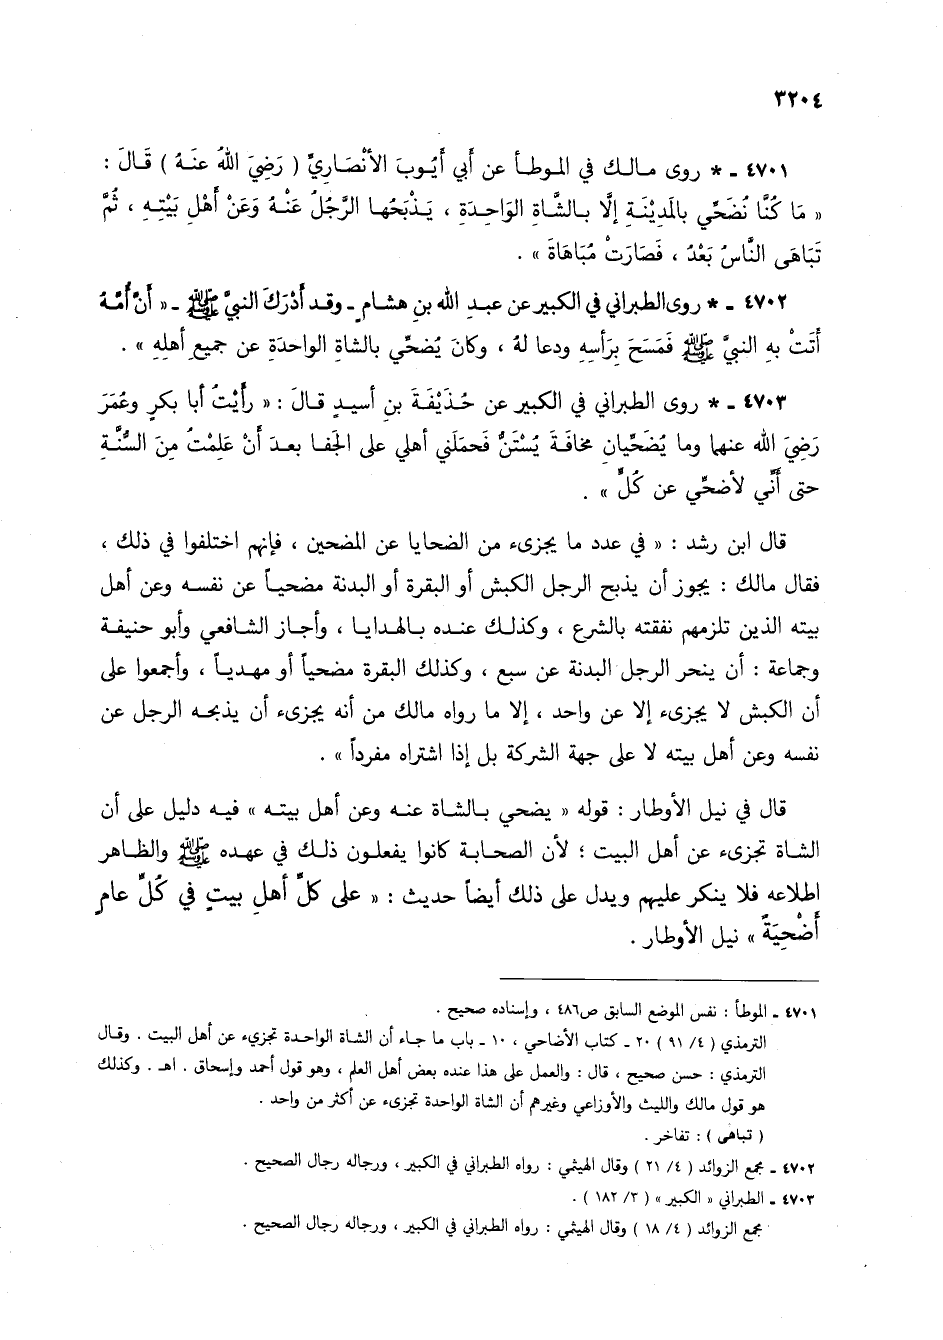 ٣٢٠٤
٤٧٠١ ـ * روى مالك في الموطأ عن أبي أَيُوبَ الأَنْصَارِيِّ ( رَضِيَ اللهُ عنَهُ ) قَالَ :
« مَا كُنَّا نُضَحِّي بالمَدِيْنَةِ إلَّا بـالشَّاةِ الوَاحِدَةِ ، يَـذْبَحُهـا الرَّجُلُ عَنْهُ وَعَنْ أَهْلِ بَيْتِهِ ، ثُمَّ
تَبَاهَى النَّاسُ بَعْدُ ، فَصَارَتْ مُبَاهَاةً » .
٤٧٠٢ ـ * روى الطبراني في الكبير عن عبـدِ الله بن هشام ـ وقد أَدْرَكَ النبيَّ ﷺ ـ « أَنَّ أُمَّهُ
أَتَتْ بهِ النبيَّ ﷺ فَمَسَحَ بِرَأسِهِ ودعا لهُ ، وكانَ يُضحِّي بالشاةِ الواحدَةِ عن جميعِ أهلهِ » .
٤٧٠٣ ـ * روى الطبراني في الكبير عن حُـذَيْفَةَ بنِ أسيـدٍ قـالَ : « رأَيْتُ أبا بكرٍ وعُمَرَ
رَضِيَ الله عنهما وما يُضَحِّيانِ مخافَـةَ يُسْتَنُّ فحملَني أهلي على الجَفـا بعـدَ أَنْ عَلِمْتُ مِنَ السُّنَّةِ
حتى أَنِّي لأضحِّي عن كُلٍّ » .
قال ابن رشد : « في عدد ما يجزىء من الضحايا عن المضحين ، فإنهم اختلفوا في ذلك ،
فقال مالك : يجوز أن يذبح الرجل الكبش أو البقرة أو البدنة مضحيـاً عن نفسـه وعن أهل
بيته الذين تلزمهم نفقته بالشرع ، وكذلـك عنـده بـالهـدايـا ، وأجـاز الشـافعي وأبو حنيفـة
وجماعة : أن ينحر الرجل البدنة عن سبع ، وكذلك البقرة مضحياً أو مهـديـاً ، وأجمعوا على
أن الكبش لا يجزىء إلا عن واحد ، إلا ما رواه مالك من أنه يجزىء أن يذبحـه الرجل عن
نفسه وعن أهل بيته لا على جهة الشركة بل إذا اشتراه مفرداً » .
قال في نيل الأوطار : قوله « يضحي بـالشاة عنـه وعن أهل بيتـه » فيـه دليل على أن
الشاة تجزىء عن أهل البيت ؛ لأن الصحـابـة كانوا يفعلون ذلـك في عهـده ﷺ والظـاهر
اطلاعه فلا ينكر عليهم ويدل على ذلك أيضاً حديث : « على كلِّ أهلِ بيتٍ في كُلِّ عامٍ
أُضْحِيَةٌ » نيل الأوطار .
٤٧٠١ ـ الموطأ : نفس الموضع السابق ص٤٨٦ ، وإسناده صحيح .
الترمذي ( ٤/ ٩١ ) ٢٠ ـ كتاب الأضاحي ، ١٠ ـ باب ما جـاء أن الشاة الواحـدة تجزيء عن أهل البيت . وقـال
الترمذي : حسن صحيح ، قال : والعمل على هذا عنده بعض أهل العلم ، وهو قول أحمد وإسحاق . اهـ . وكذلك
هو قول مالك والليث والأوزاعي وغيرهم أن الشاة الواحدة تجزىء عن أكثر من واحد .
( تباهى ) : تفاخر .
٤٧٠٢ ـ مجمع الزوائد ( ٤/ ٢١ ) وقال الهيثمي : رواه الطبراني في الكبير ، ورجاله رجال الصحيح .
٤٧٠٣ ـ الطبراني « الكبير » ( ٣/ ١٨٢ ) .
مجمع الزوائد ( ٤/ ١٨ ) وقال الهيثمي : رواه الطبراني في الكبير ، ورجاله رجال الصحيح .